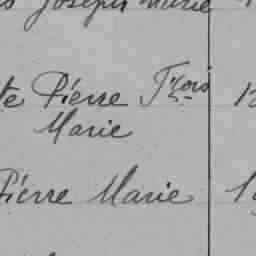 Joseph Marie
te Pierre Fçois
Marie
Pierre Marie